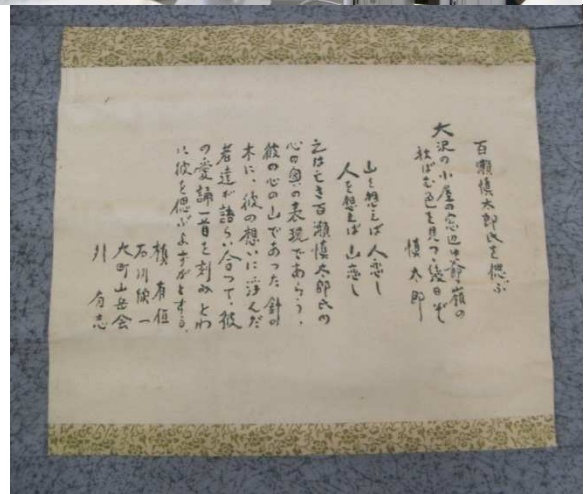 百瀬慎太郎氏を偲ぶ
大沢の小屋の窓辺ゆ爺嶺の
秋ばむ色を見つゝ幾日ぞ
慎太郎
山を想えば人恋し
人を想えば山恋し
之は亡き百瀬慎太郎氏の
心の奥の表現であらう、
彼の心の山であつた針の
木に、彼の想いに浮んだ
者達が語らい合つて、彼
の愛誦一首を刻み とわ
に彼を偲ぶよすがとする。
槙 有恒
石川欣一
大町山岳会
外 有志